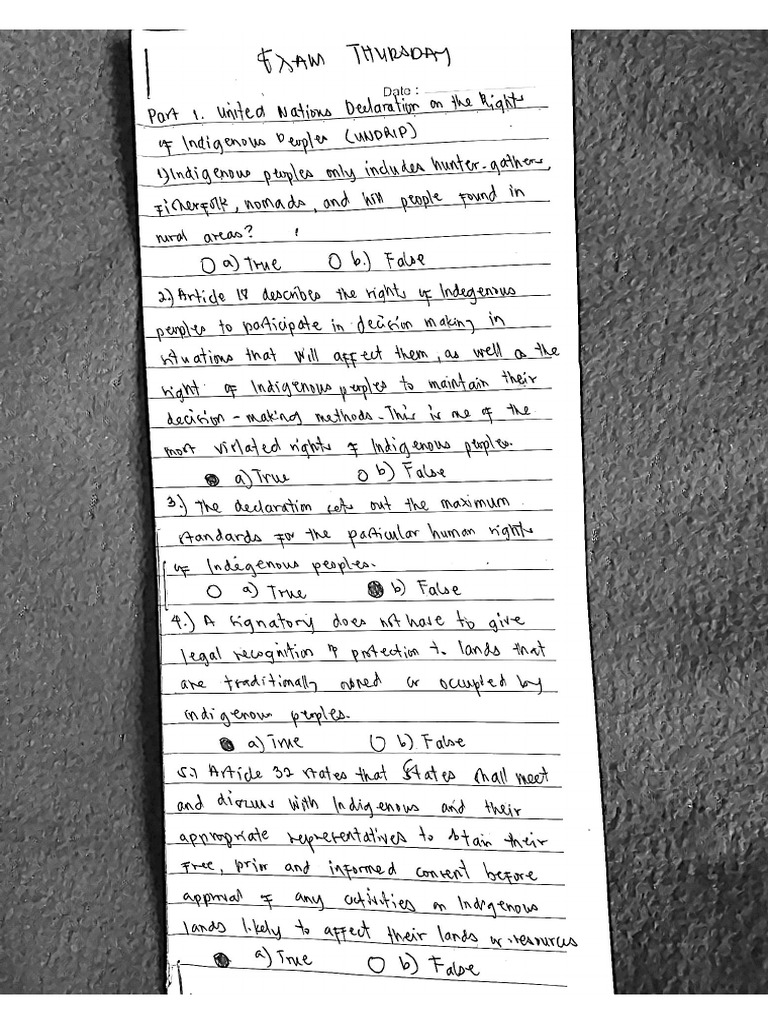 EXAM THURSDAY
Date :
Part 1. United Nations Declaration on the Right
of Indigenous Peoples (UNDRIP)
1) Indigenous peoples only includes hunter-gathers,
Fisherfolk, nomads, and hill people found in
rural areas?
a) True b.) False
2.) Article 18 describes the rights of Indegenous
peoples to participate in decision making in
situations that will affect them, as well as the
right of Indigenous peoples to maintain their
decision-making methods. This is one of the
most violated rights of Indigenous peoples.
a) True b) False
3.) The declaration sets out the maximum
standards for the particular human rights
of Indegenous peoples.
a) True b) False
4.) A signatory does not have to give
legal recognition & protection to lands that
are traditionally owned or occupied by
indigenous peoples.
a) True b) False
5.) Article 32 states that States shall meet
and discuss with Indigenous and their
appropriate representatives to obtain their
free, prior and informed consent before
approval of any activities on Indigenous
lands likely to affect their lands or resources
a) True b) False